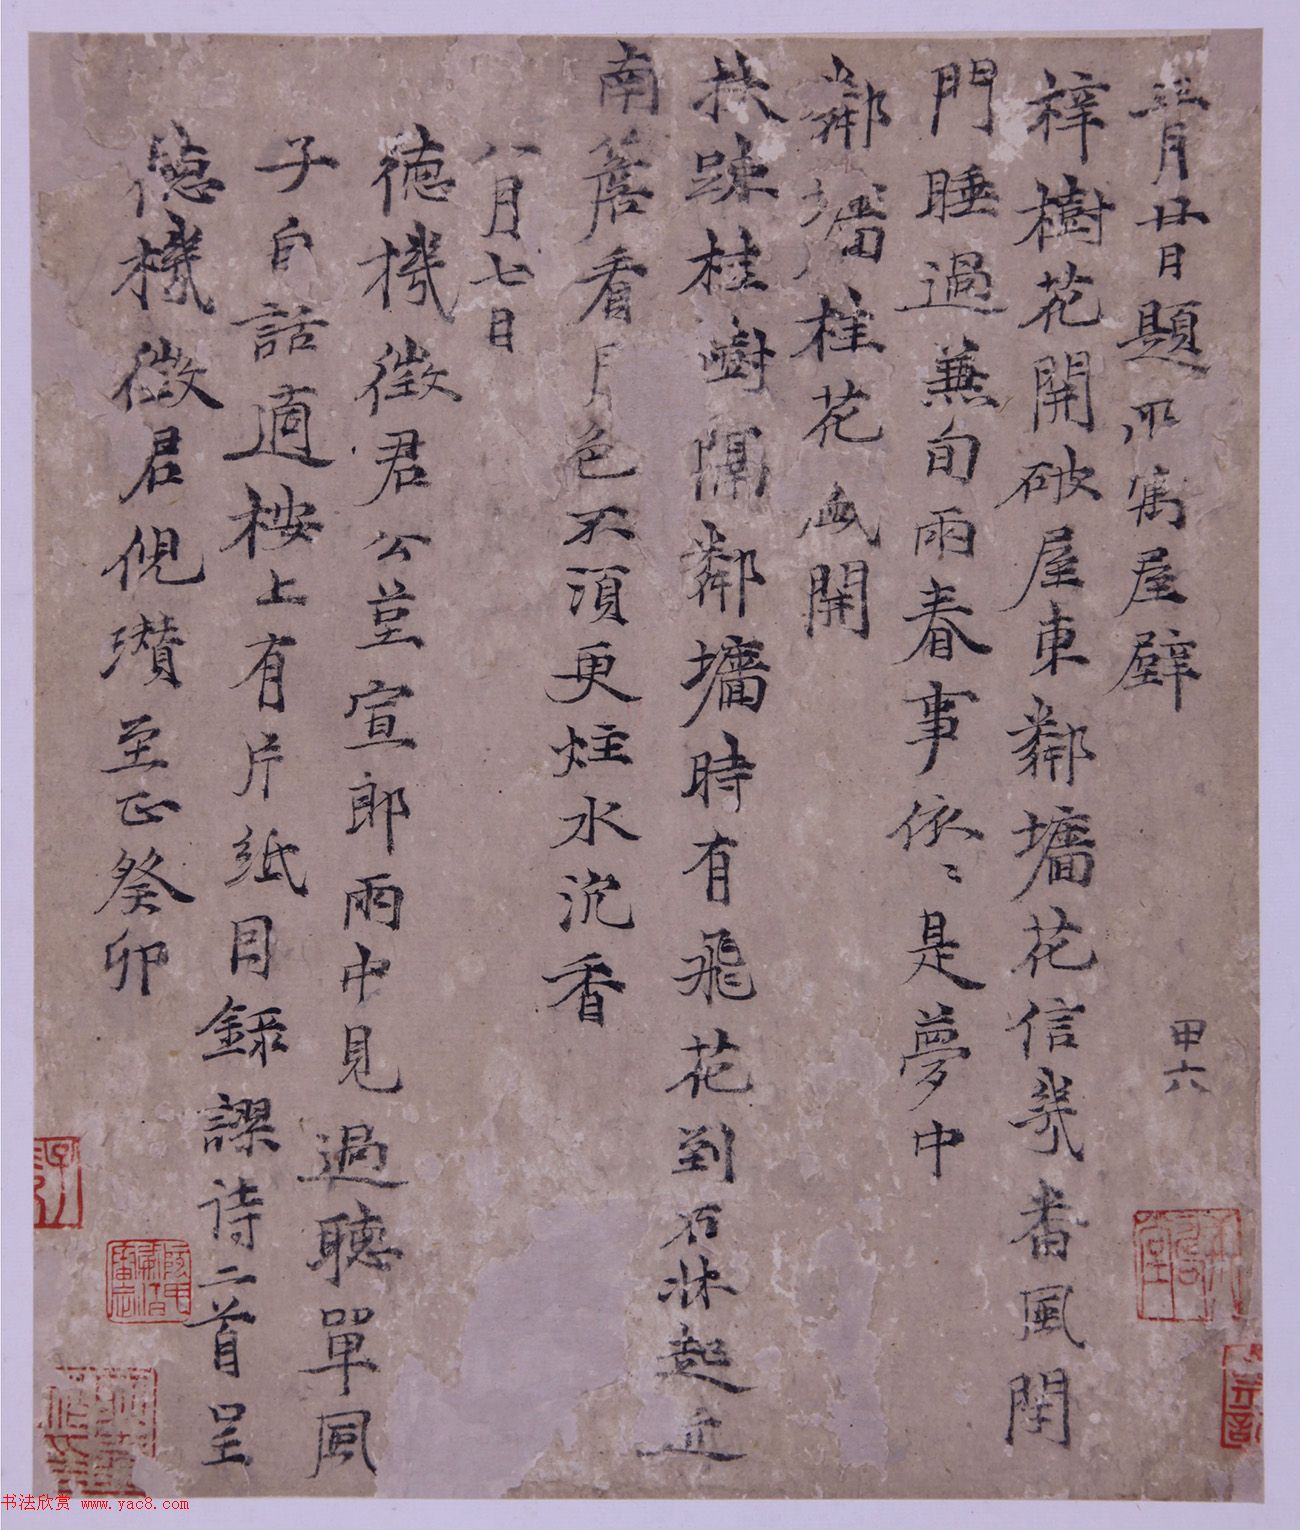 三月廿日題所寓屋壁
梓樹花開破屋東鄰墻花信幾番風閉
門睡過兼旬雨春事依〻是夢中
鄰墻桂花盛開
扶疎桂樹隔鄰墻時有飛花到石牀起近
南簷看月色不須更炷水沉香
八月七日
德機徵君公茔宣郎雨中見過聽單風
子自話適桉上有片紙目錄謬诗二首呈
德機徵君倪瓚至正癸卯
甲六
书法欣赏 www.yac8.com